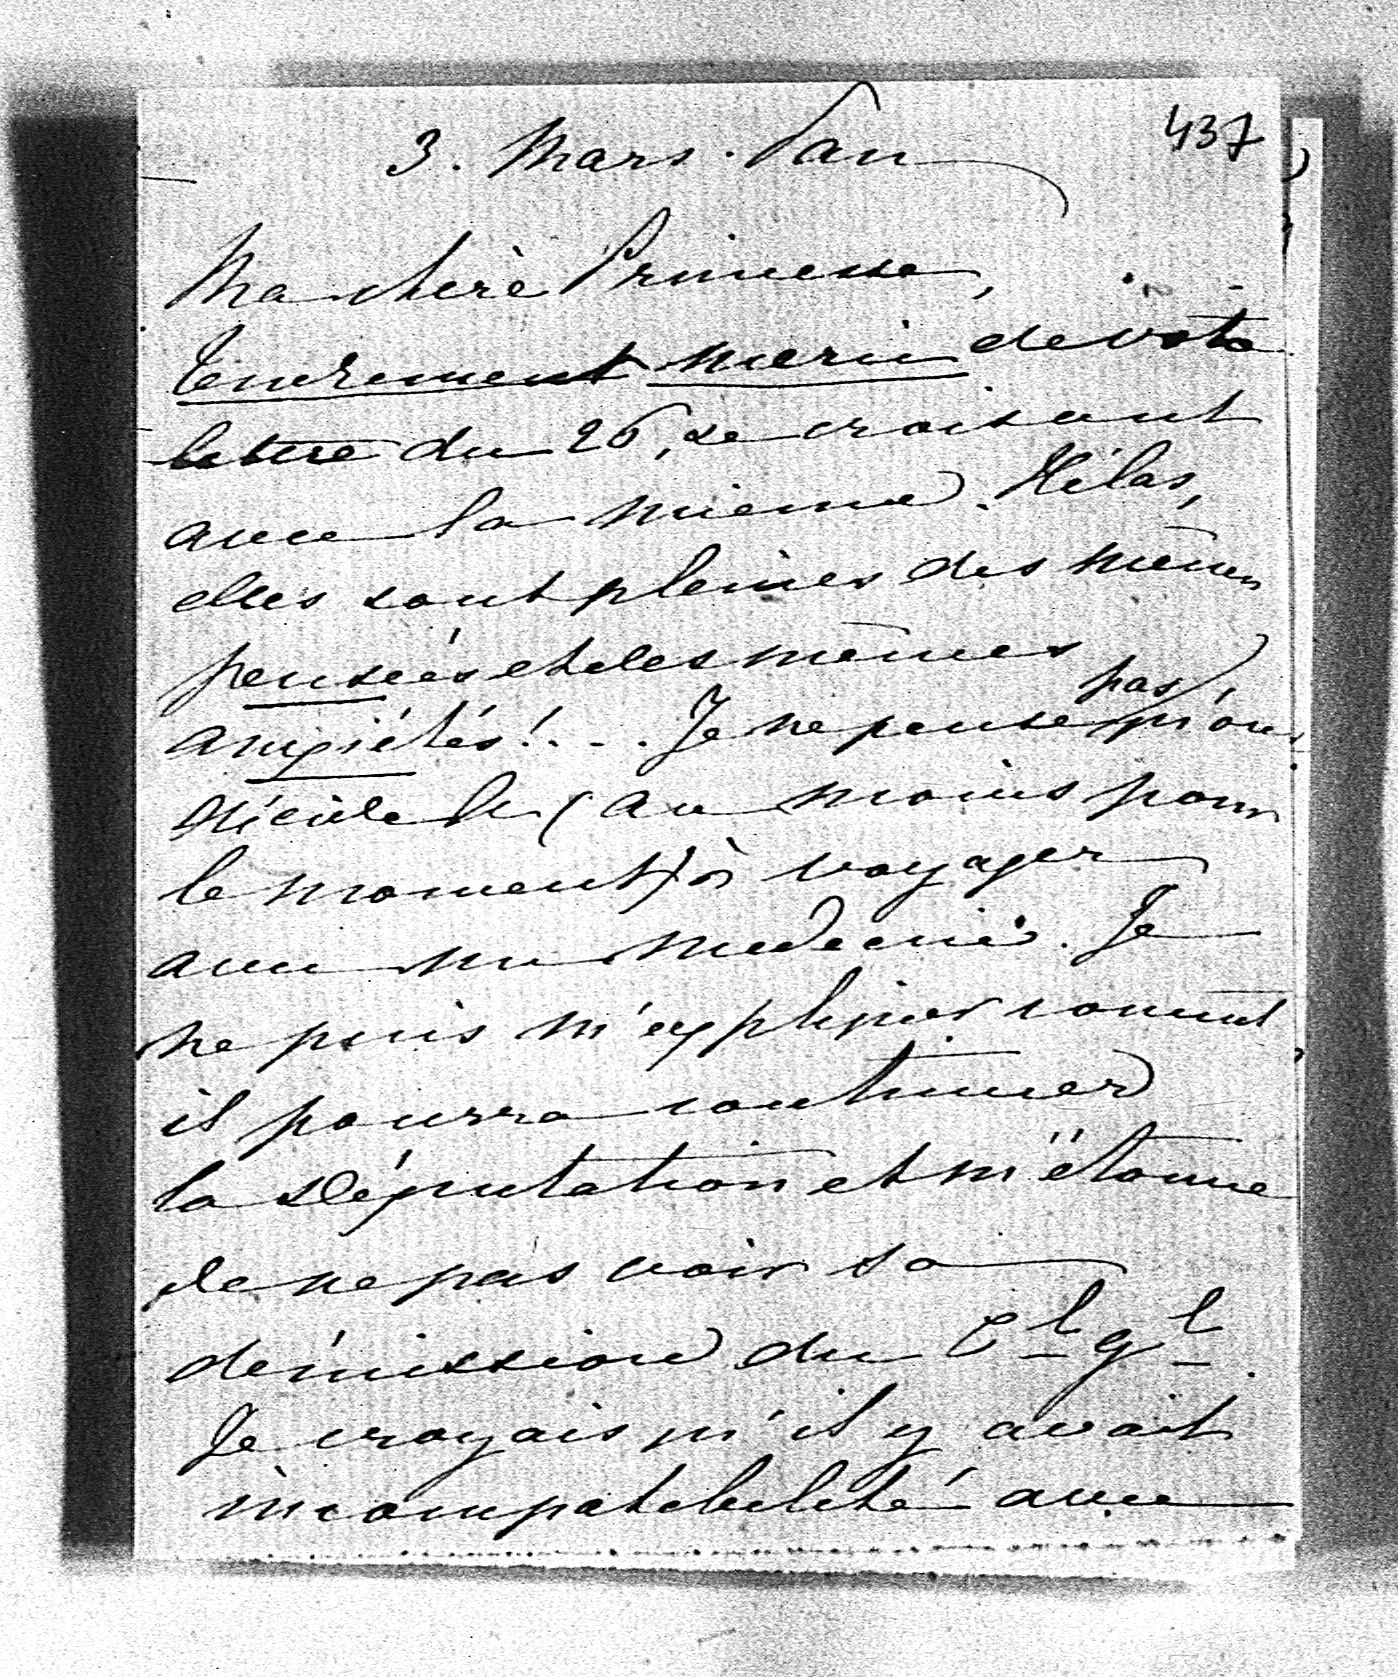 437
3. Mars. Pau
Ma chère Princesse,
Tendrement merci de votre
lettre du 26, se croisant
avec la mienne. Hélas,
elles sont pleines des mêmes
pensées et des mêmes
anxiétés!... Je ne pense pas qu'on
décide le (au moins pour
le moment) à voyager
avec un médecin. Je
ne puis m'expliquer comment
il pourra continuer
la députation et m'étonne
de ne pas voir sa
démission du Cl gl.
Je croyais qu'il y avait
incompatibilité avec